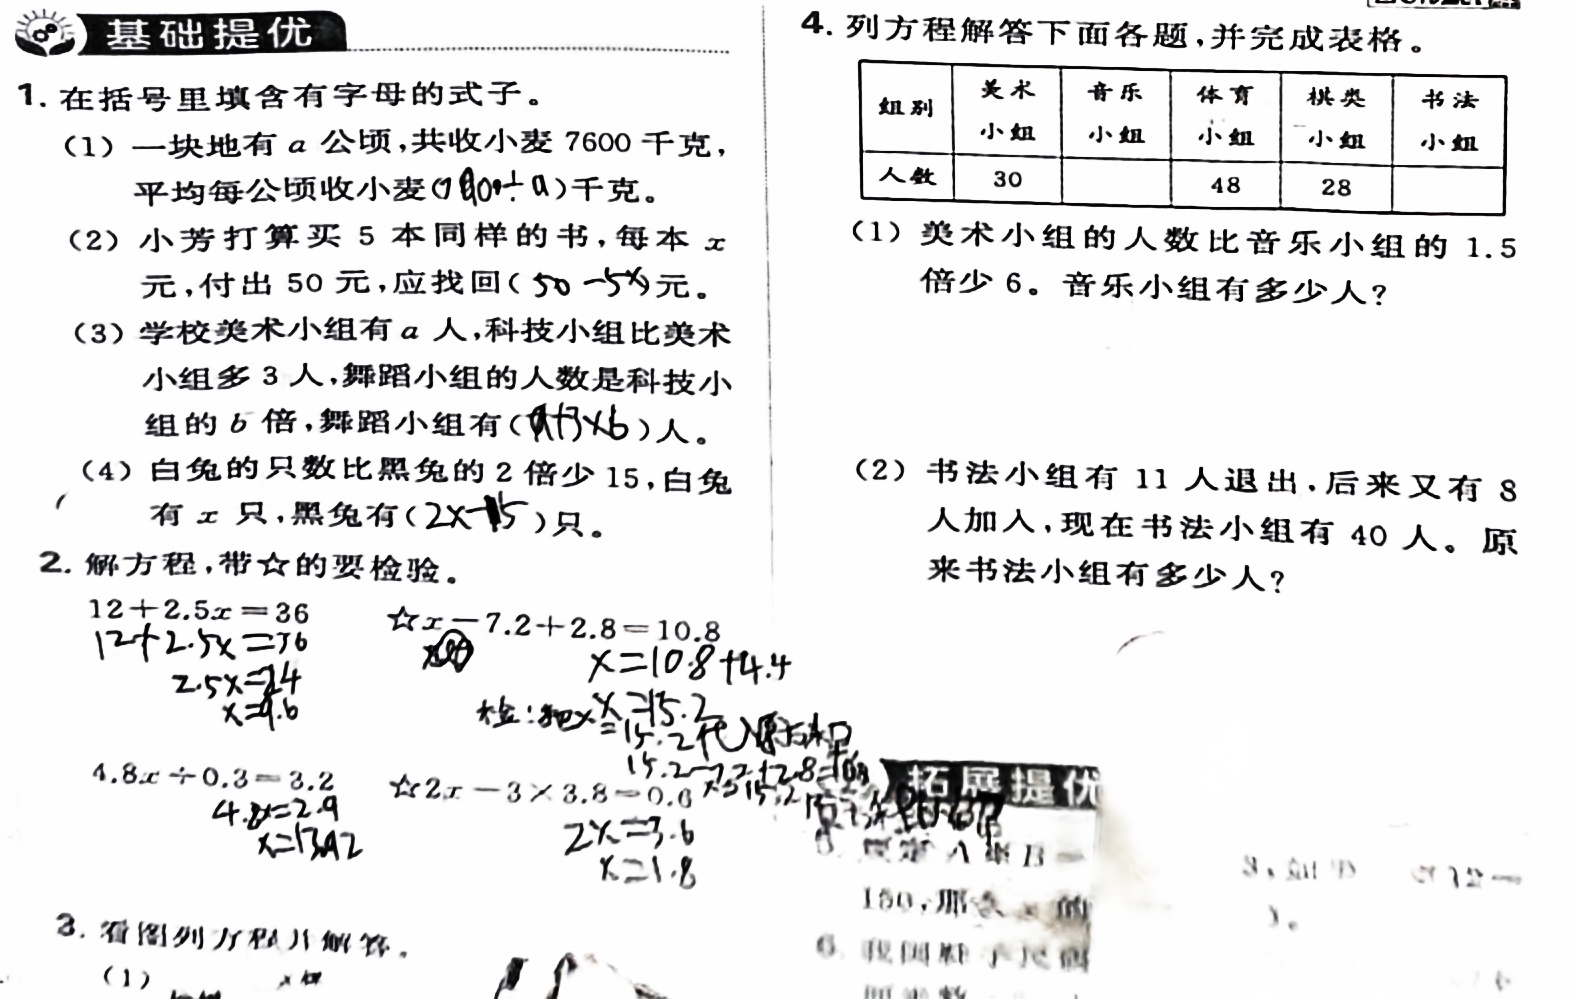 基础提优
1. 在括号里填含有字母的式子。
(1) 一块地有 a 公顷,共收小麦 7600 千克,
平均每公顷收小麦( ÷a)千克。
(2) 小芳打算买 5 本同样的书,每本 x
元,付出 50 元,应找回(50-5x)元。
(3) 学校美术小组有 a 人,科技小组比美术
小组多 3 人,舞蹈小组的人数是科技小
组的 b 倍,舞蹈小组有(a+3×b)人。
(4) 白兔的只数比黑兔的 2 倍少 15,白兔
有 x 只,黑兔有(2x-15)只。
2. 解方程,带☆的要检验。
12+2.5x=36
12+2.5x=36
2.5x=24
x=9.6
☆x-7.2+2.8=10.8
x=10.8+4.4
x=15.2
检:把x
=15.2代入原
15.2-7.2+2.8=10.8
x=15.2
4.8x÷0.3=3.2
4.8x=2.9
☆2x-3×3.8=0.6
2x=3.6
x=1.8
3. 看图列方程并解答。
(1)
4. 列方程解答下面各题,并完成表格。
组别 美术小组 音乐小组 体育小组 棋类小组 书法小组
人数 30 48 28
(1) 美术小组的人数比音乐小组的 1.5
倍少 6。音乐小组有多少人?
(2) 书法小组有 11 人退出,后来又有 8
人加入,现在书法小组有 40 人。原
来书法小组有多少人?
拓展提优
A 乘 B
150,那么 的
6. 我国鞋子尺码